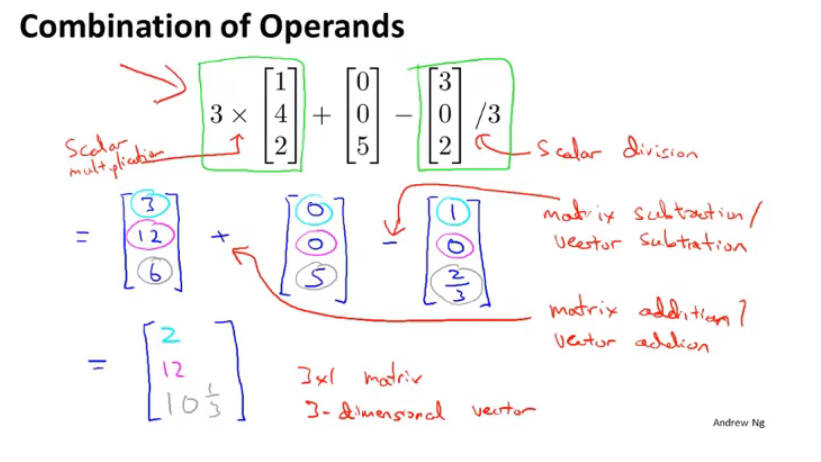 Combination of Operands
3 × [1 4 2] + [0 0 5] − [3 0 2] /3
Scalar
multiplication
Scalar division
= [3 12 6] + [0 0 5] - [1 0 2/3]
matrix subtraction/
vector subtration
matrix addition/
vector addion
= [2 12 10 1/3]
3x1 matrix
3-dimensional vector
Andrew Ng